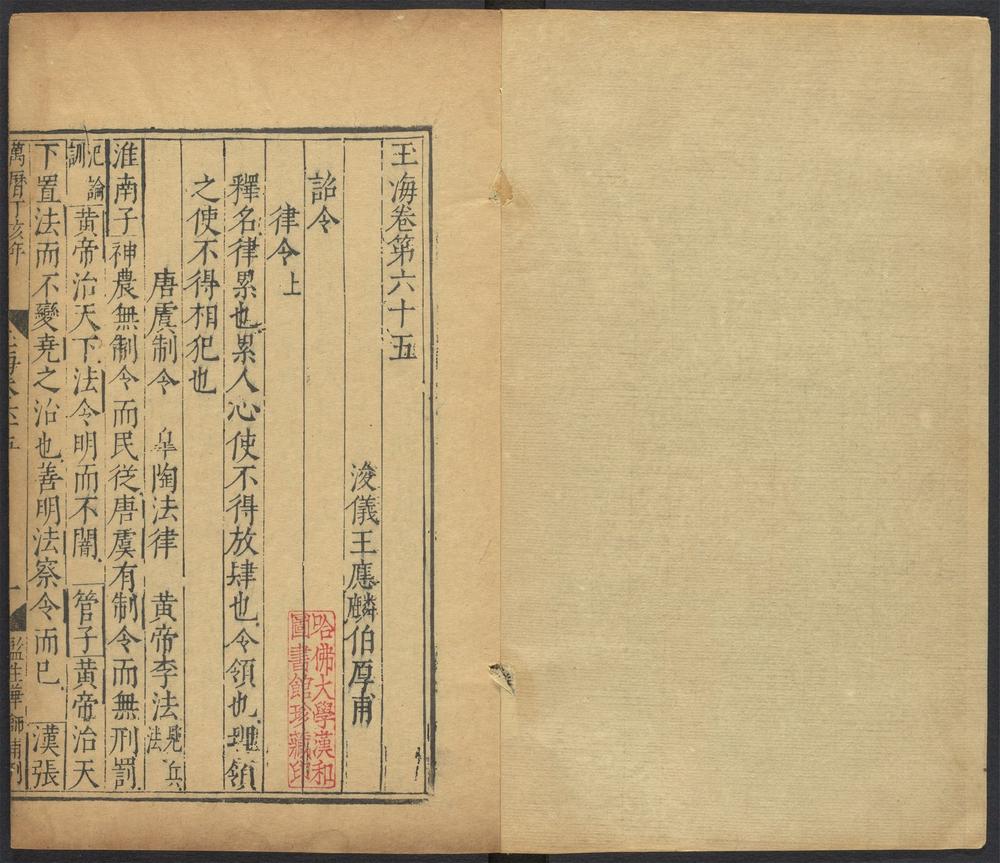 玉海卷第六十五
浚儀王應麟伯厚甫
詔令
律令上
釋名律累也累人心使不得放肆也令領也理領
之使不得相犯也
唐虞制令 皐陶法律 黃帝李法見兵法
淮南子神農無制令而民從唐虞有制令而無刑罰
氾論訓黃帝治天下法令明而不闇 管子黃帝治天
下置法而不變堯之治也善明法察令而已 漢張
萬曆丁亥年 玉海卷六十五 一 監生華師甫刊
哈佛大學漢和
圖書館珍藏印